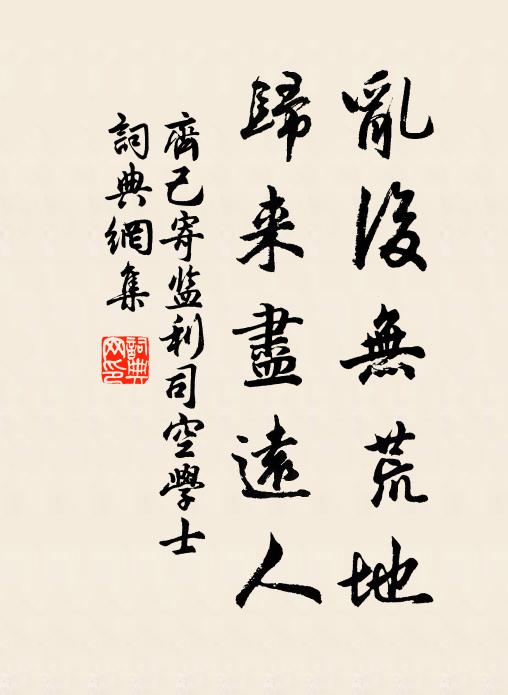 亂後無荒地
歸来盡遠人
齊己寄监利司空學士
詞典網集
詞典
网印